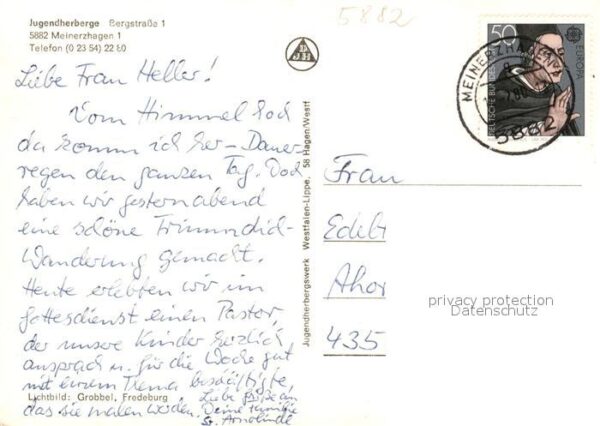 Jugendherberge Bergstraße 1
5882 Meinerzhagen 1
Telefon (0 23 54) 22 80
5882
50
EUROPA
MEINERZHAGEN
5882
Liebe Frau Heller!
Vom Himmel hoch
da komm ich her - Dauer-
regen den ganzen Tag. Doch
haben wir gestern abend
eine schöne Trimmdich-
Wanderung gemacht.
Heute erlebten wir im
Gottesdienst einen Pastor,
der unsere Kinder herzlich
ansprach u. für die Woche gut
mit einem Thema beschäftigte,
das sie malen würden. Liebe Grüße an
Deine Familie
Lichtbild: Grobbel, Fredeburg
Jugendherbergswerk Westfalen-Lippe, 58 Hagen/Westf
Frau
Ahor
435
privacy protection
Datenschutz